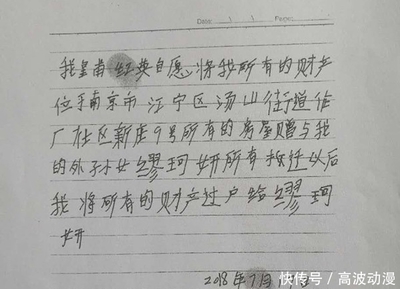 Date: Page:
我皇甫红英自愿,将我所有的财产
位于南京市江宁区汤山街道作
厂社区新庄9号所有的房屋赠与我
的外孙女缪珂妍所有拆迁以后
我将所有的财产过户给缪珂
妍
2018年7月
快传号/高波动漫